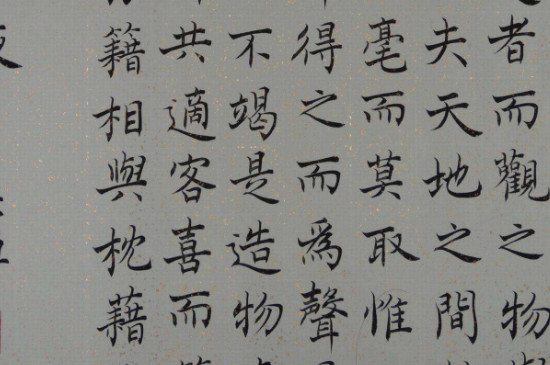 者而觀之物
夫天地之間
毫而莫取惟
得之而為聲
不竭是造物
共適客喜而
籍相與枕藉